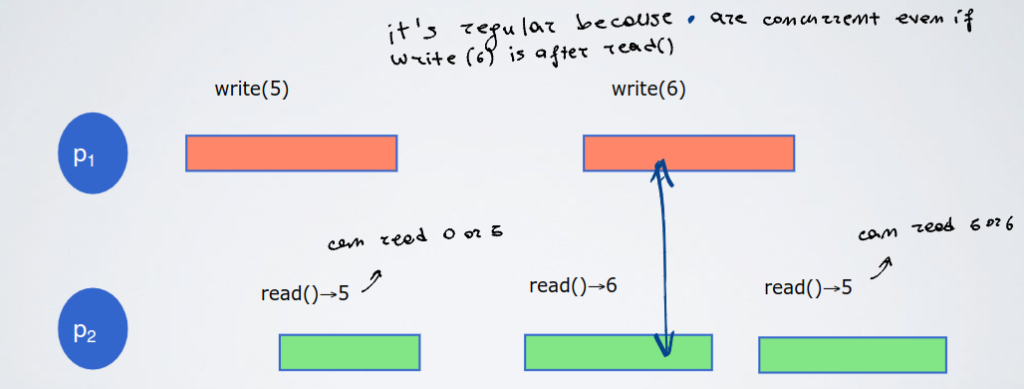 it's regular because • are concurrent even if
write (6) is after read()
write(5)
write(6)
p1
can read 0 or 5
can read 5 or 6
read()→5
read()→6
read()→5
p2